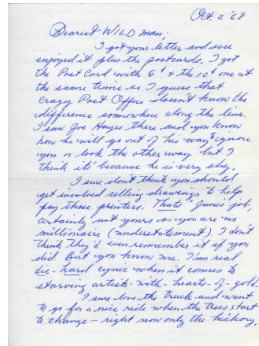 Oct. 2 '68
Dearest WILD man;
I got your letter and sure
enjoyed it plus the postcards. I got
the Post Card with 6¢ & the 10¢ one at
the same time so I guess that
crazy Post Office doesn't know the
difference somewhere along the line.
I saw Joe Hayes there and you know
how he will go out of his way to ignore
you or look the other way but I
think it's because he is very shy.
I sure don't think you should
get involved selling drawings to help
pay those printers. That's job,
certainly not yours as you are no
millionaire (understatement). I don't
think they'd even remember it if you
did. But you know me. I'm real
die-hard cynic when it comes to
starving artists-with-hearts-of-gold.
I sure love the truck and want
to go for a nice ride when the trees start
to change - right now only the hickory,